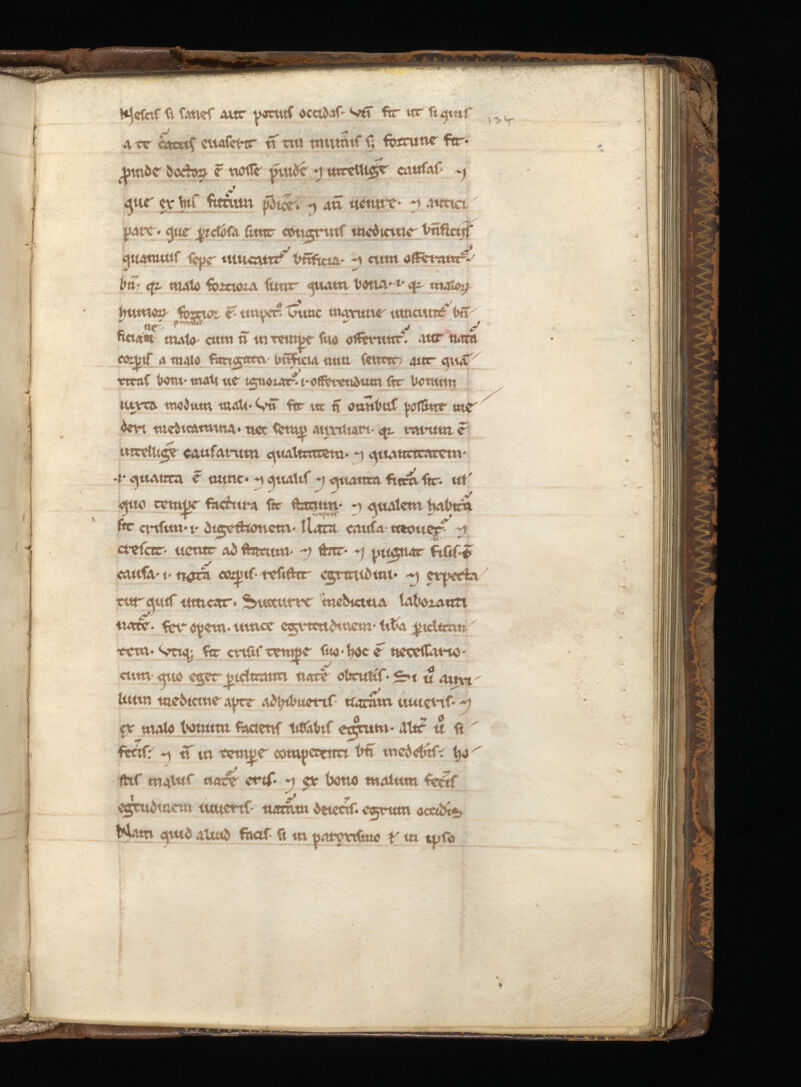 Nescis si sanes aut potius occidas. Vñ fit ut si quis 134
a te cactus euaserit ñ tui muniis s; fortune sit.
ꝓinde doctoꝝ ē nosse p̄uidē ⁊ intelligē causas. ⁊
que ex his futurum p̄dicē. ⁊ an uenire. ⁊ antici
pare. que ꝑiclosa sunt congruis medicine bn̄ficijs
quamuis sepe uincant᷑ bn̄ficia. ⁊ cum offerant᷑.
bñ; qꝛ mala fortiora sunt quam bona .i. qꝛ maloꝝ
humoꝝ fortior ē impet᷒. Tunc maxime uincunt᷑ bn̄
ficia malo. cum ñ in tempe suo offerunt᷑. aut nata
corꝑis a malo fatigata. bn̄ficia non sentit, aut quā
titas boni. mali ue ignorat᷑ .i. offerendum sit bonum
iuxta modum mali. Vñ fit ut ñ omībus possint me
deri medicamina. nec semꝑ auxiliari. qꝛ rarum ē
intelligē causarum qualitatem. ⁊ quantitatem.
.i. quanta ē nunc. ⁊ qualis ⁊ quanta futa sit. ul
quo tempe factura sit statum. ⁊ qualem habita
sit crisim .i. digestionem. Nata causa mouet᷑ ⁊
crescit. uenit ad statum. ⁊ stat. ⁊ pugnat
causa .i. nata corꝑis. resistit egritudini. ⁊ expecta
tur quis uincat. Succurre medicina laboranti
nate. fer opem. uince egritudinem. liba ꝑiclitan
tem. Vtiq; fit crisis tempe suo. hoc ē necessario.
cum quo eget ꝑiclitanti nate obtulis. Si u̾ auxi
lium medicine apte adhibueris. natam iuueris. ⁊
ex malo bonum faciens libabis egrotum. Alit᷑ u̾ si
fecis; ⁊ ñ in tempe competenti bñ medebis; ho
stis magis nate eris. ⁊ ex bono malum fecis
egritudinem iuueris. natam deiecis. egrum occidis.
Nam quid aliud facis. si in paroxismo ł in ipso